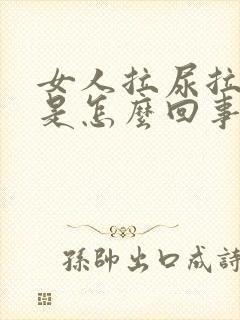 女人拉尿拉
是怎麼回事
孫帥出口成詩